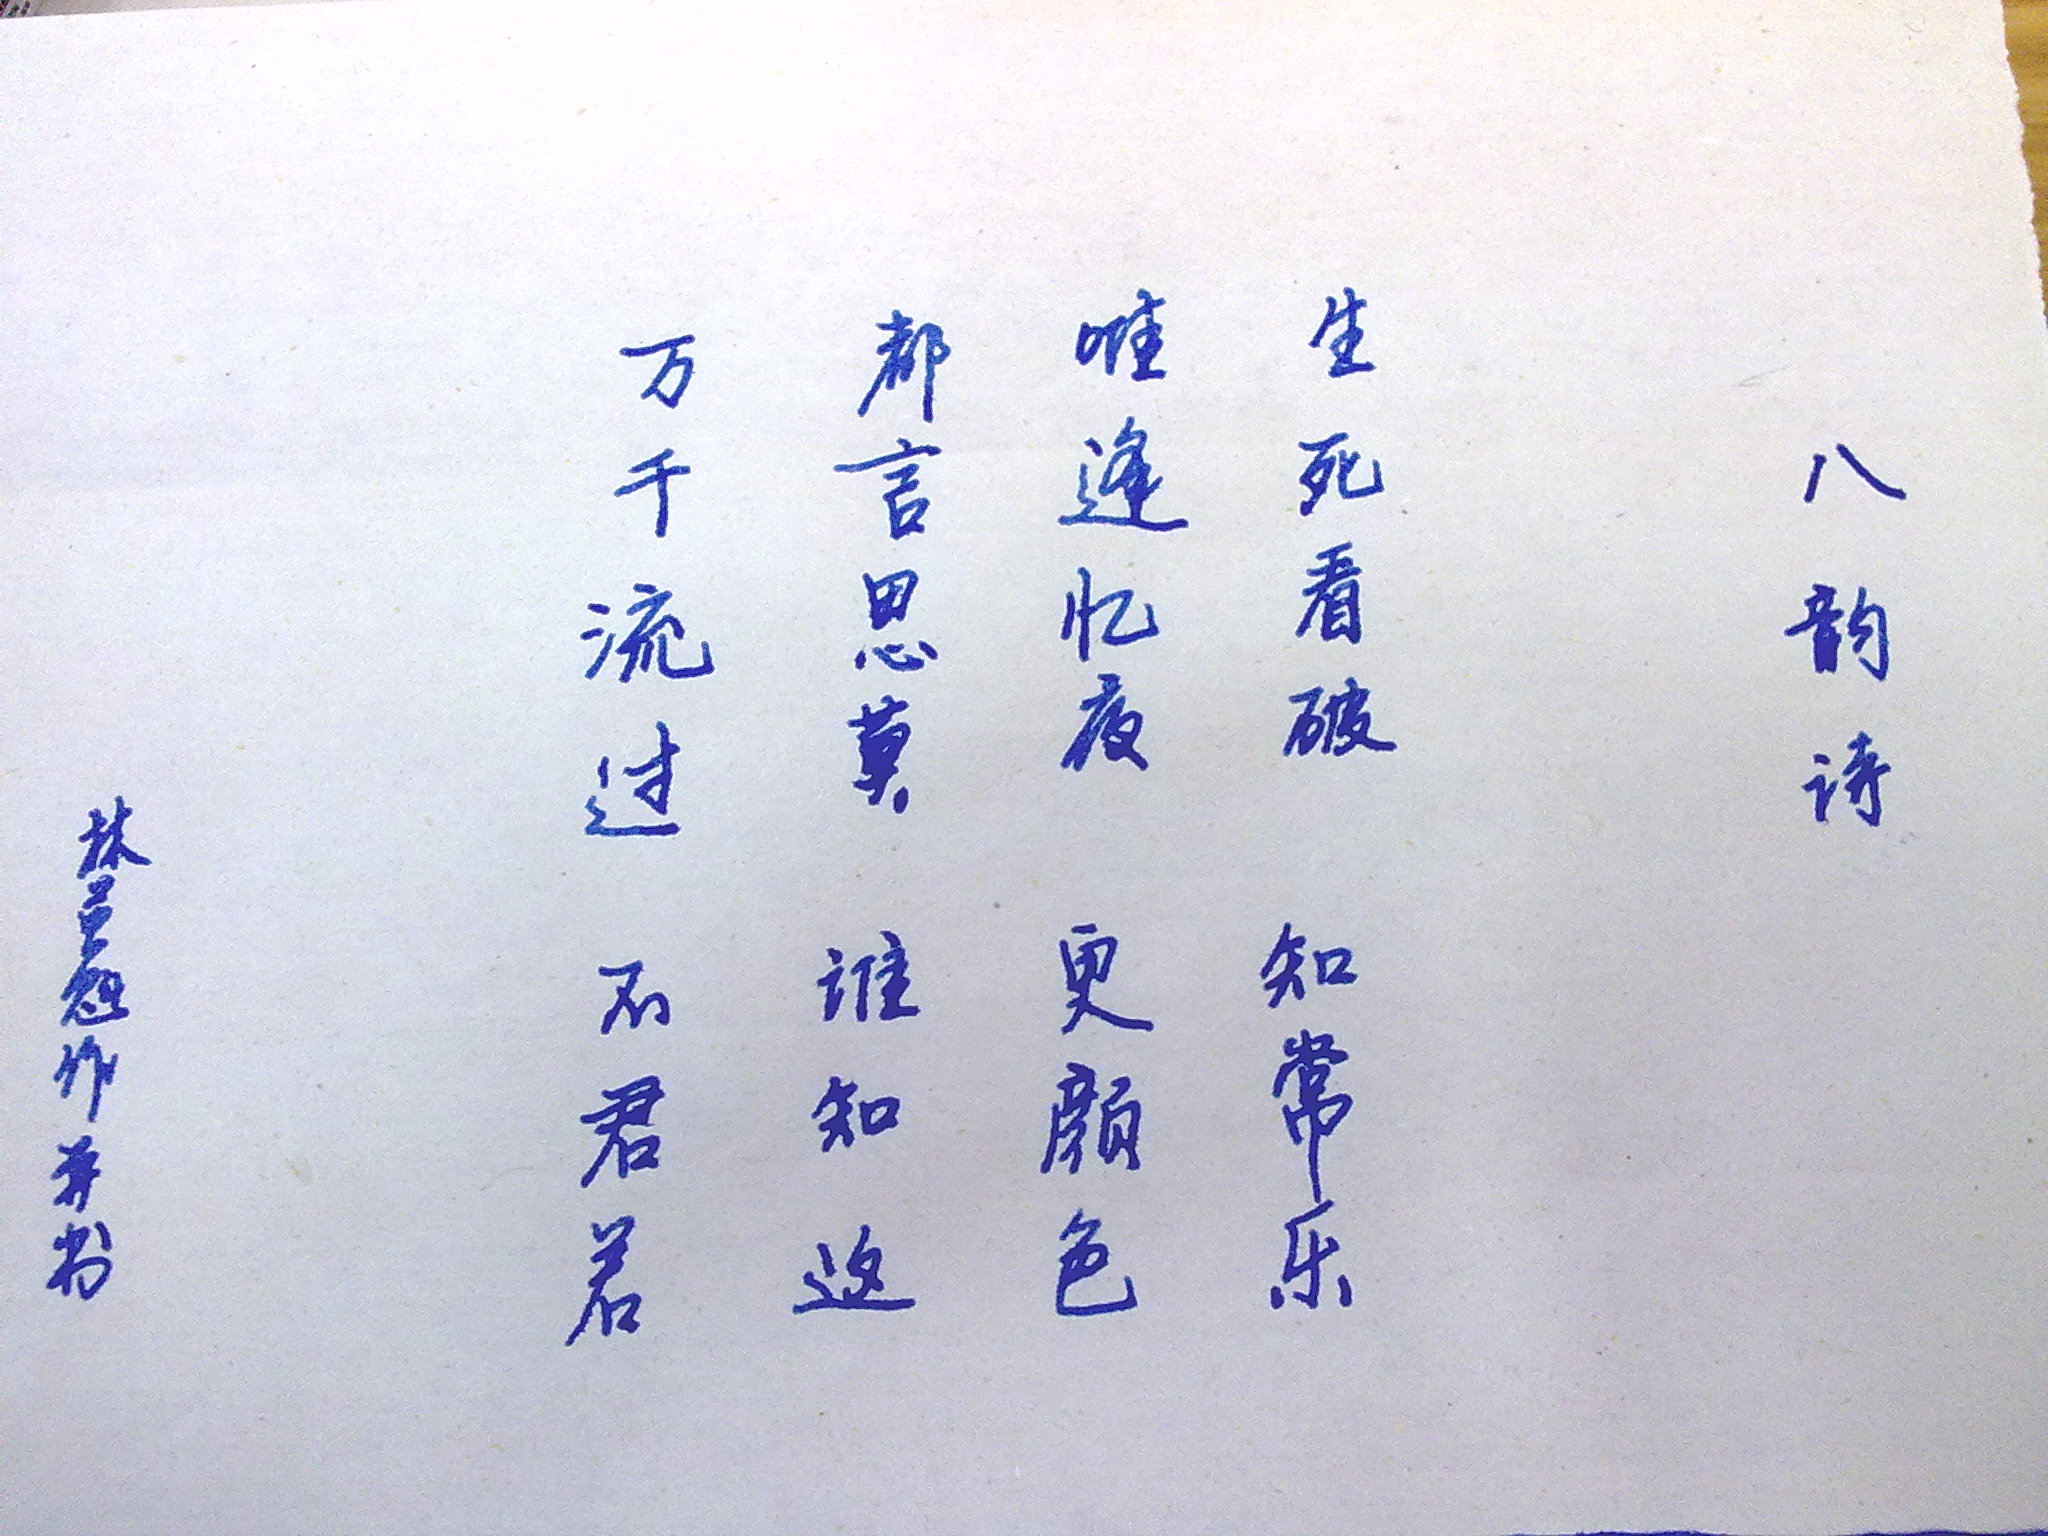 八韵诗
生死看破 知常乐
唯逢忆夜 更颜色
都言思莫 谁知这
万千流过 不君若
林 作并书